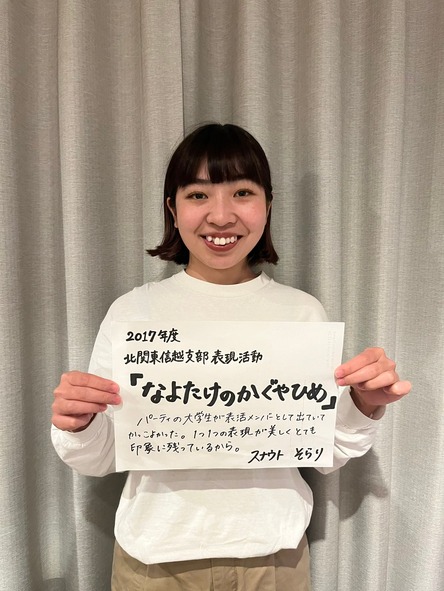 2017年度
北関東信越支部 表現活動
「なよたけのかぐやひめ」
パーティの大学生が表活メンバーとして出ていて
かっこよかった。1つ1つの表現が美しくとても
印象に残っているから。
スナウト そらり